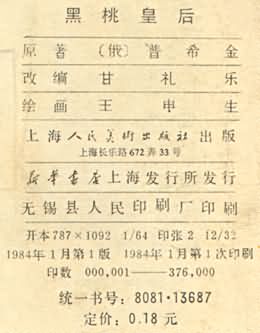 黑桃皇后
原著 (俄) 普希金
改编 甘礼乐
绘画 王申生
上海人民美術出版社出版
上海长乐路672弄33号
新华書店上海发行所发行
无锡县人民印刷厂印刷
开本787×1092 1/64 印张2 12/32
1984年1月第1版 1984年1月第1次印刷
印数 000,001——376,000
统一书号：8081·13687
定价：0.18元